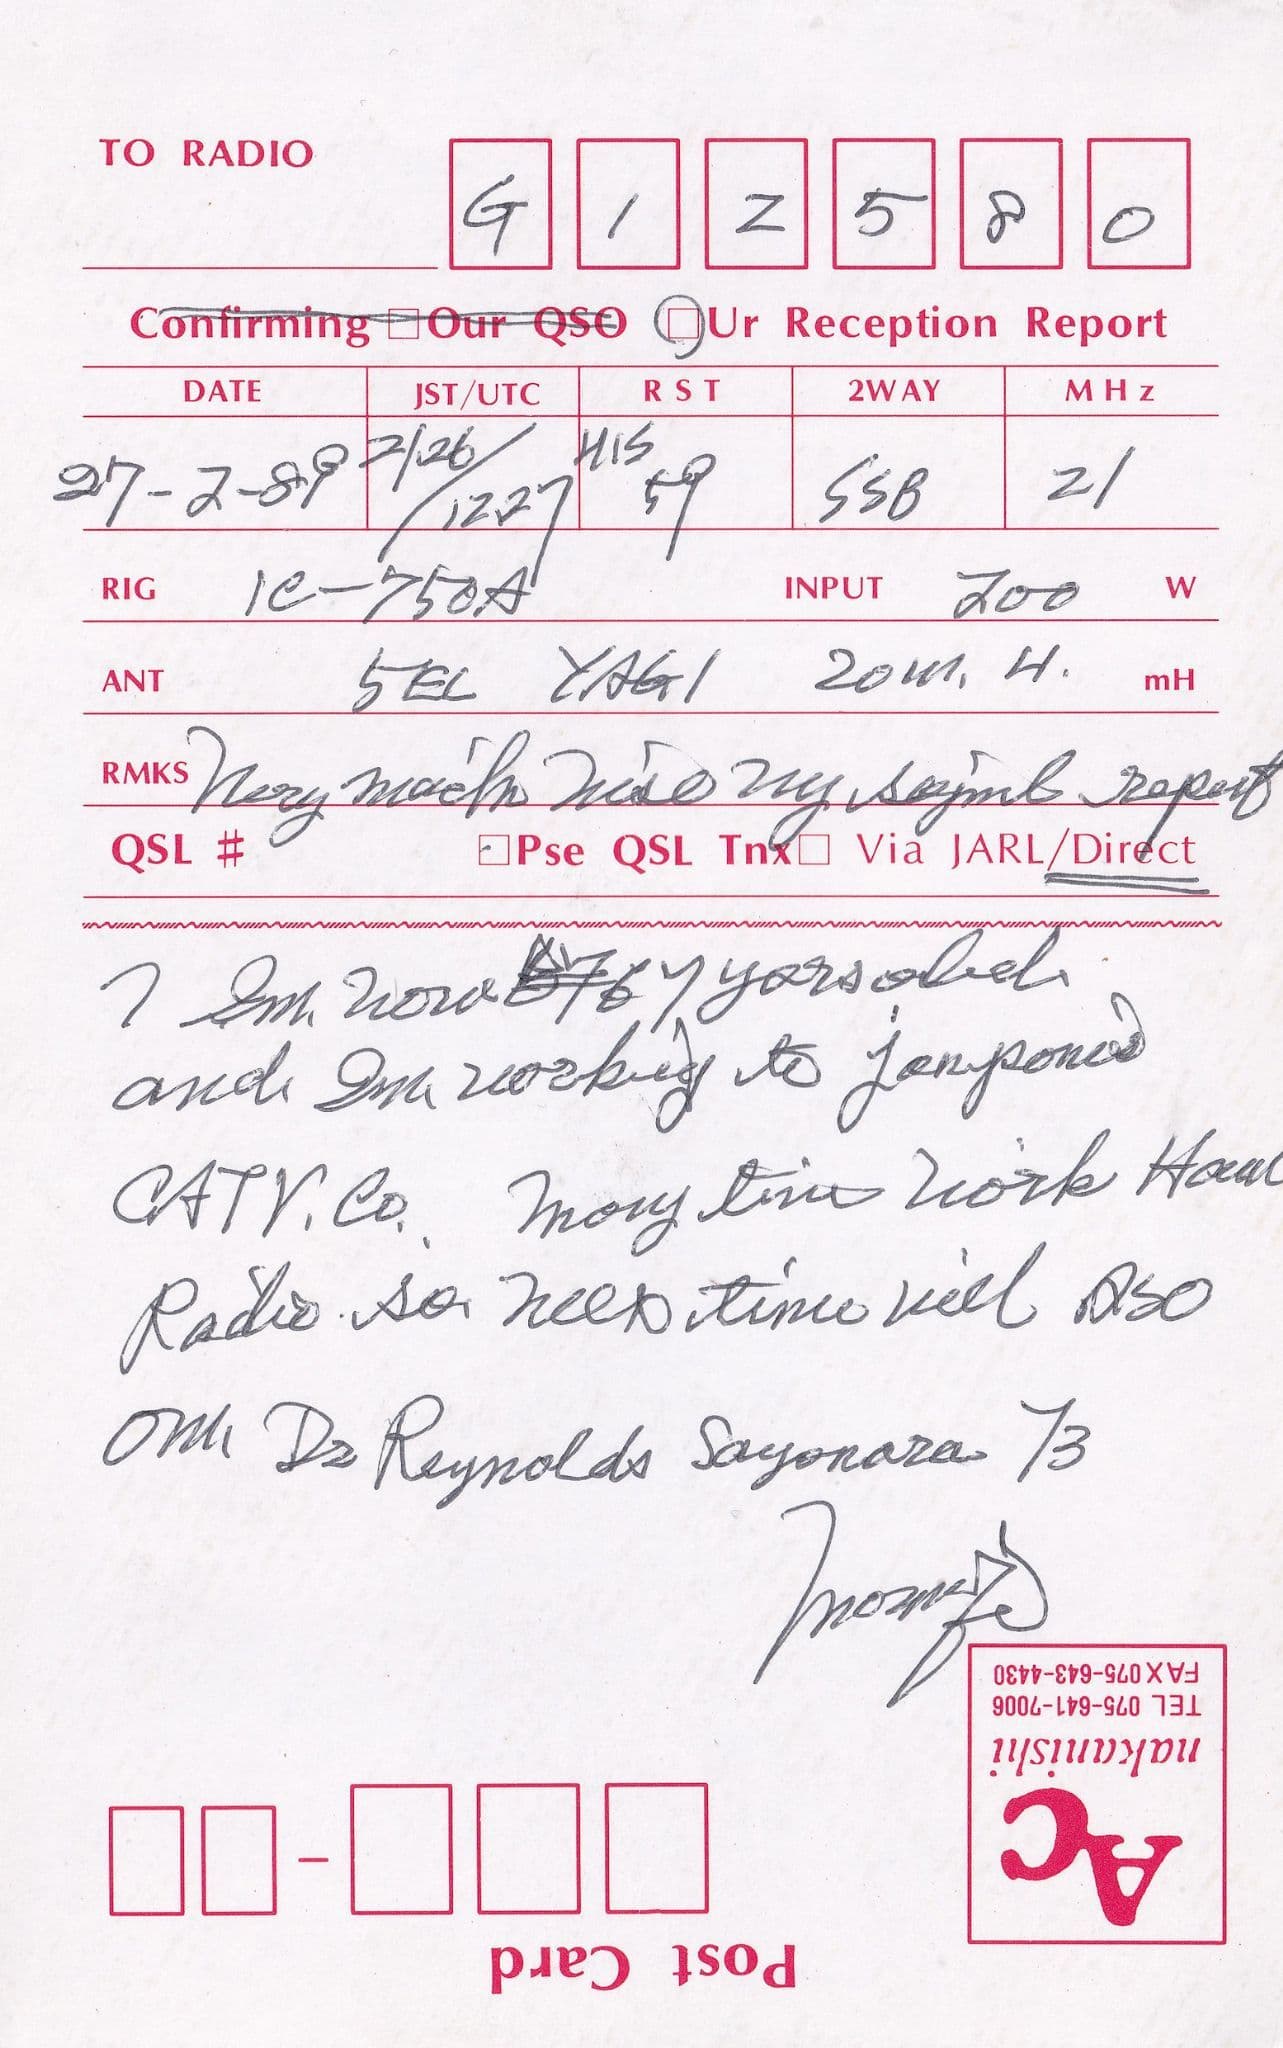 TO RADIO G 1 Z 5 8 0
Confirming □ Our QSO □ Ur Reception Report
DATE JST/UTC RST 2WAY MHz
27-2-89 2/26/1227 HIS 59 SSB 21
RIG IC-750A INPUT 200 W
ANT 5EL YAGI 20m. H. mH
RMKS Very much nise my report
QSL # □ Pse QSL Tnx □ Via JARL/Direct
I Im. now 67 yarsold
and. Im. working to
CATV. Co. Many time work Ham
Radio. so. time will QSO
OM. Dr Reynolds Sayonara 73
FAX 075-643-4430
TEL 075-641-7006
nakanishi
AC
Post Card